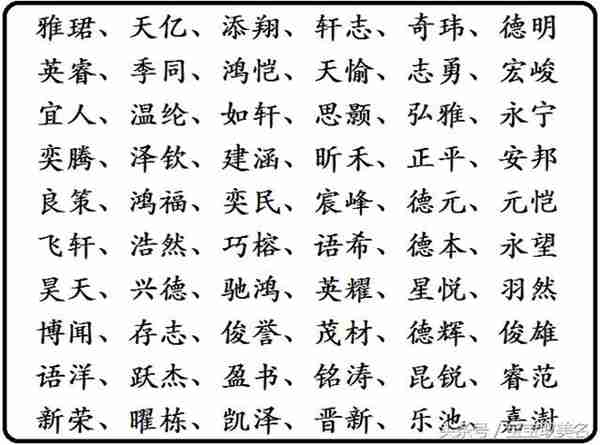 雅珺、天亿、添翔、轩志、奇玮、德明
英睿、季同、鸿恺、天愉、志勇、宏峻
宜人、温纶、如轩、思颢、弘雅、永宁
奕腾、泽钦、建涵、昕禾、正平、安邦
良策、鸿福、奕民、宸峰、德元、元恺
飞轩、浩然、巧榕、语希、德本、永望
昊天、兴德、驰鸿、英耀、星悦、羽然
博闻、存志、俊誉、茂材、德辉、俊雄
语洋、跃杰、盈书、铭涛、昆锐、睿范
新荣、曜栋、凯泽、晋新、乐池、嘉澍